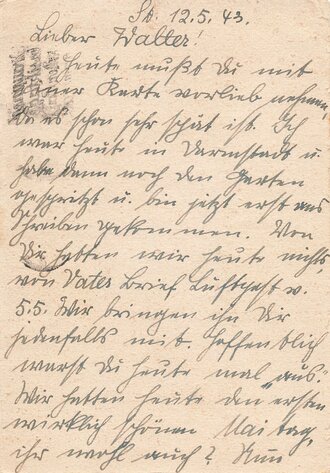 St. 12.5.43.
Lieber Walter!
Heute mußt Du mit
einer Karte vorlieb nehmen,
da es schon sehr spät ist. Ich
war heute in Darmstadt u.
habe dann noch den Garten
gespritzt u. bin jetzt erst ans
Schreiben gekommen. Von
Dir hatten wir heute nichts,
von Vater Brief Luftpost v.
5.5. Wir bringen ihn Dir
jedenfalls mit. Hoffentlich
warst Du heute mal „aus".
Wir hatten heute den ersten
wirklich schönen Maitag,
ihr wohl auch? Nun